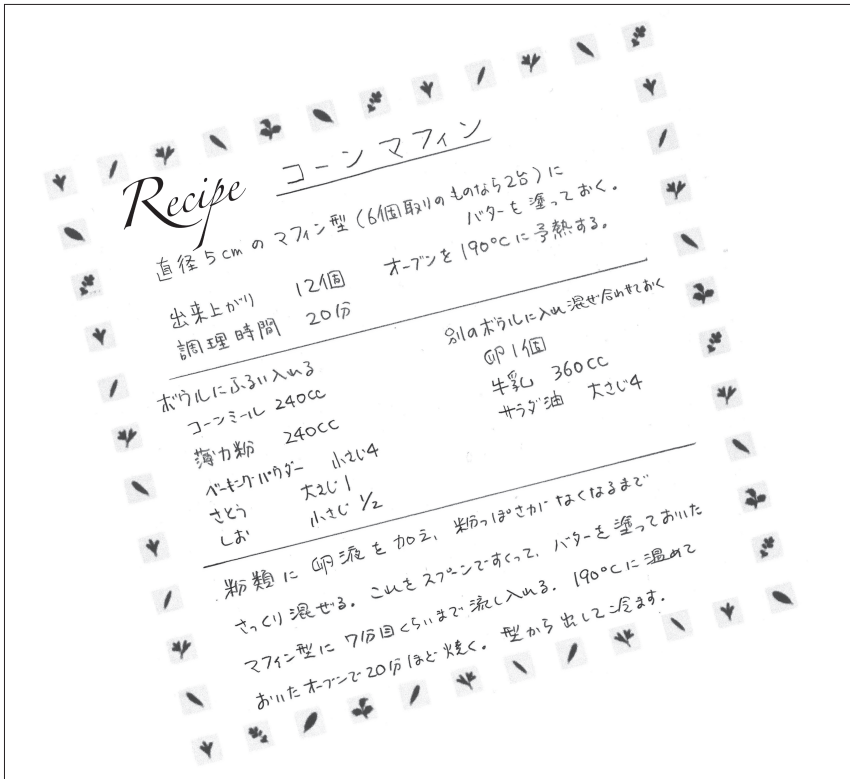 Recipe コーンマフィン
直径5cmのマフィン型(6個取りのものなら2台)に
バターを塗っておく。
オーブンを190℃に予熱する。
出来上がり 12個
調理時間 20分
ボウルにふるい入れる
コーンミール 240cc
薄力粉 240cc
ベーキングパウダー 小さじ4
さとう 大さじ1
しお 小さじ1/2
別のボウルに入れ混ぜ合わせておく
卵1個
牛乳 360cc
サラダ油 大さじ4
粉類に卵液を加え、粉っぽさがなくなるまで
さっくり混ぜる。これをスプーンですくって、バターを塗っておいた
マフィン型に7分目くらいまで流し入れる。190℃に温めて
おいたオーブンで20分ほど焼く。型から出して冷ます。